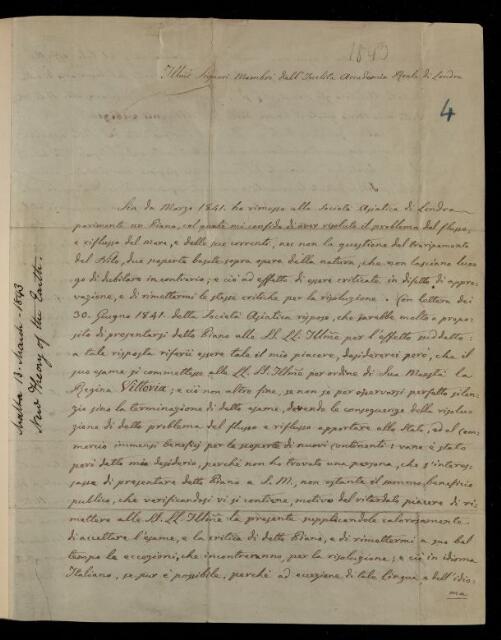 1843
Illmi Signori Membri dell'Inclita Accademia Reale di Londra
4
Sin da Marzo 1841. ho rimesso alla Società Asiatica di Londra
parimente un Piano, col quale mi confido di aver risoluto il problema del flusso,
e riflusso del mare, e delle sue correnti, nec non la questione del
del Nilo, due scoperte basate sopra opere della natura, che non lasciano luo=
go di dubitare in contrario; e ciò ad effetto di essere criticate in difetto di appro=
vazione, e di rimettermi le stesse critiche per la risoluzione. Con lettera dei
30. Giugno 1841. detta Società Asiatica rispose, che sarebbe molto a propo=
sito di presentarsi detto Piano alle LL. LL. Illme per l'effetto suddetto:
a tale risposta riferii essere tale il mio piacere, desidererei però, che il
suo esame si commettesse alle LL. LL. Illme per ordine di Sua Maestà la
Regina Vittoria; e ciò non altro fine, se non se per osservarsi perfetto silen=
zio sino la terminazione di detto esame, dovendo le conseguenze della risolu=
zione di detto problema del flusso e riflusso apportare allo Stato, ed al com=
mercio immensi beneficj per le scoperte di nuovi continenti: vano è stato
però detto mio desiderio, perchè non ho trovato una persona, che s'interes=
sasse di presentare detto Piano a S. M., non ostante il sommo beneficio
publico, che verificandosi vi si contiene, motivo del ritardato piacere di ri=
mettere alle LL. LL. Illme la presente supplicandole calorosamente
di accettare l'esame, e la critica di detto Piano, e di rimettermi a suo bel
tempo le eccezioni, che incontreranno, per la risoluzione; e ciò in idioma
Italiano, se pur è possibile, perchè ad eccezione di tale lingua, e dell'idio=
ma
Malta 13. March. 1843
New Theory of the Earth.